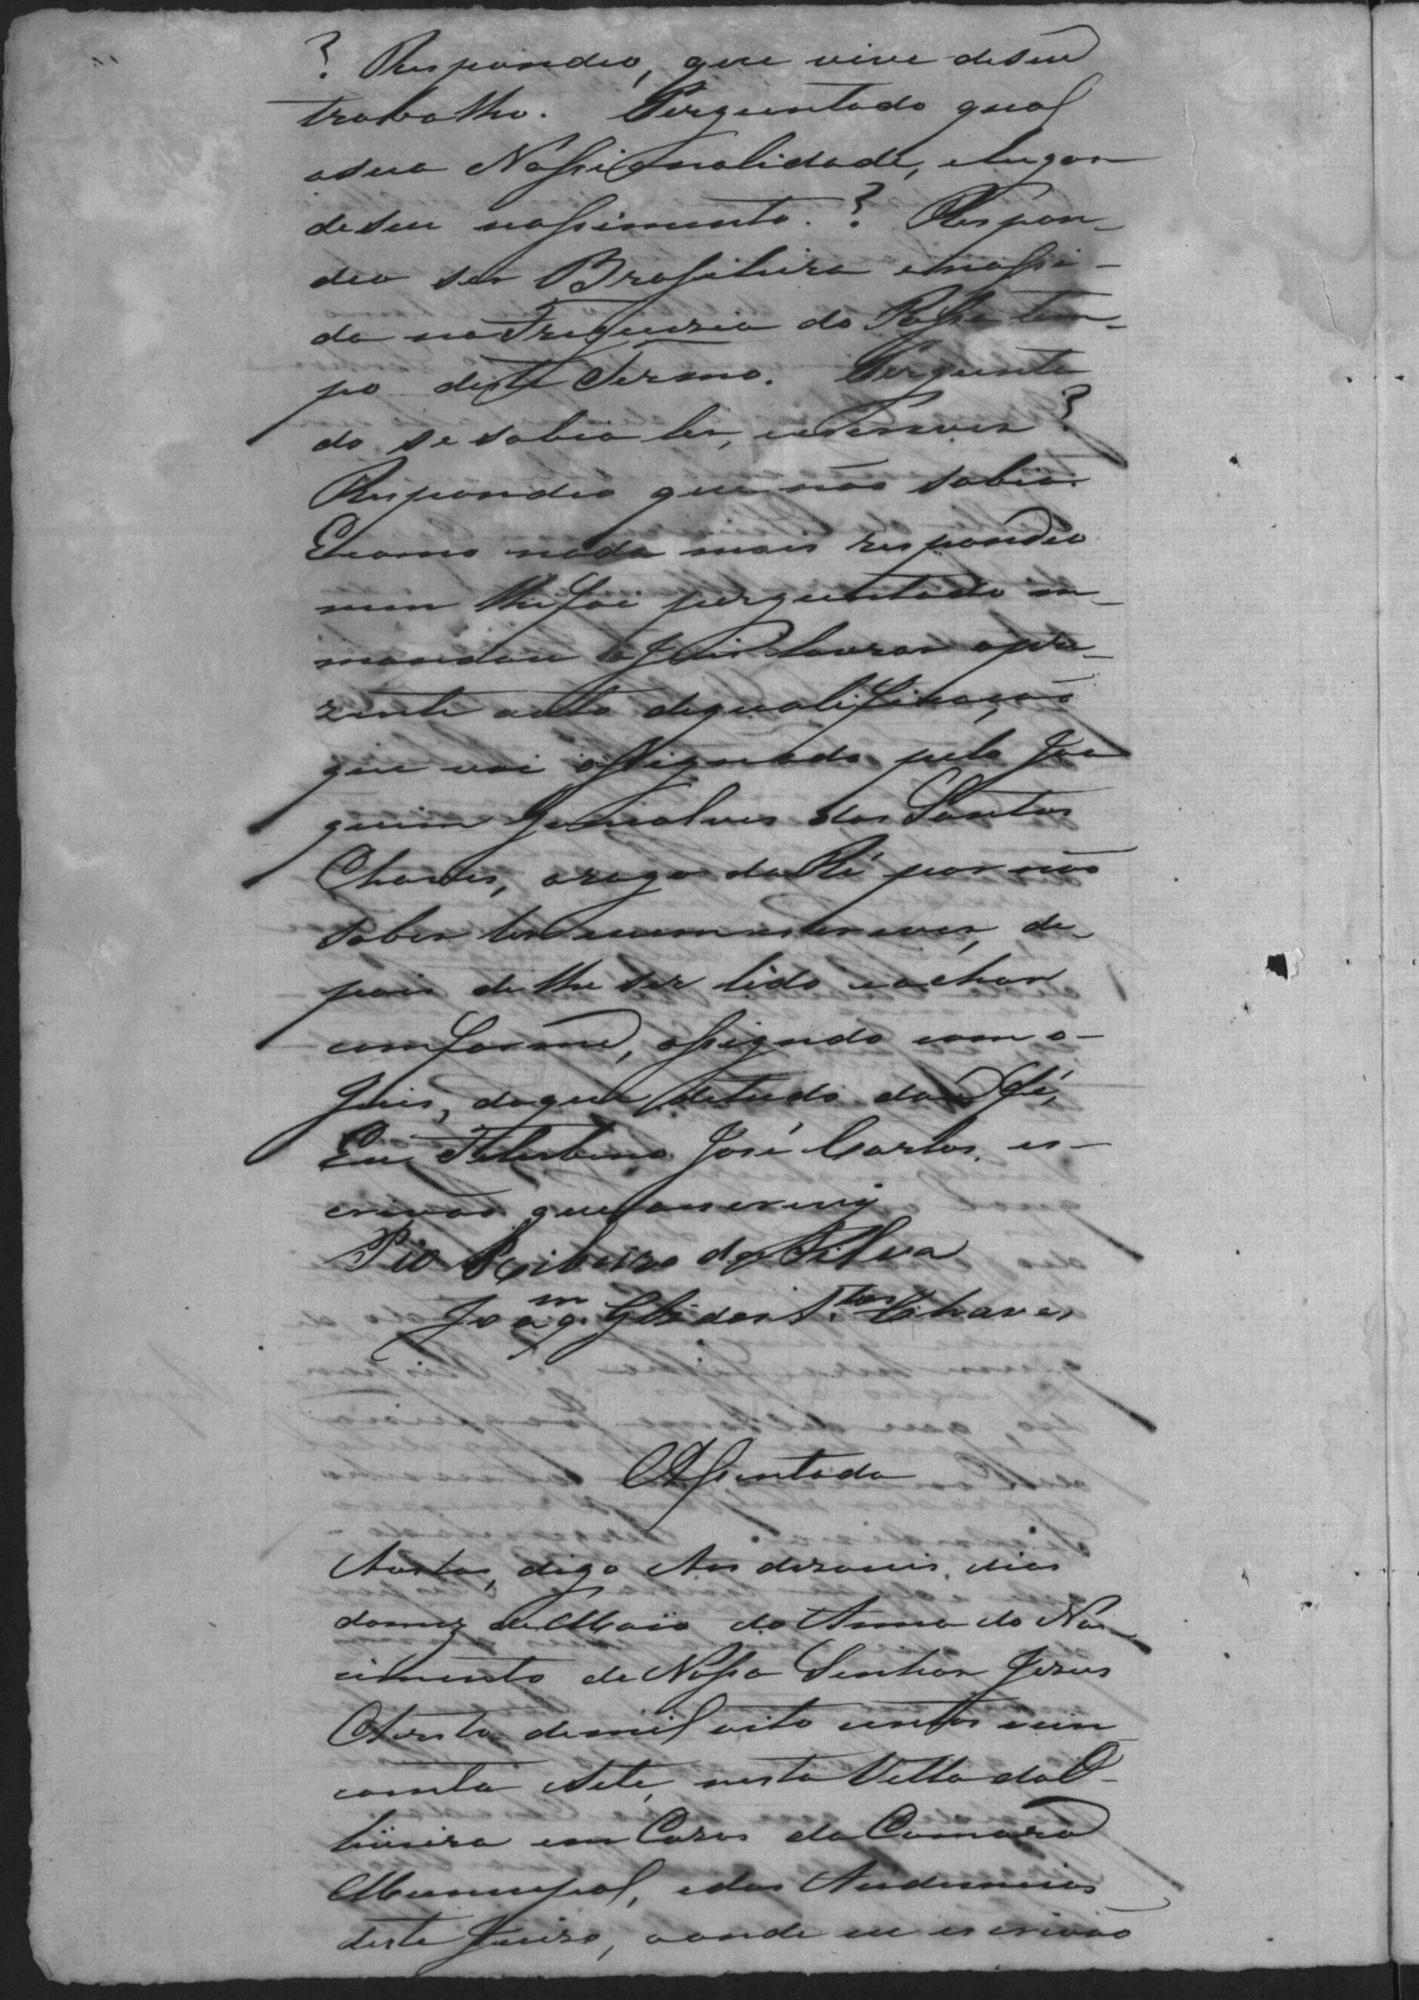 ? Respondeo, que vive deseu
trabalho. Perguntado qual
asua Nassionalidade, elugar
deseu nassimento.? Respon-
deo ser Brasileira enassi-
da na Freguezia do Passa tem-
po deste Termo. Pergunta
do se sabia ler, eescrever?
Respondeo que não sabia.
Ecomo nada mais respondeo
nem lhe foi perguntado m-
mandou o Juis lavrar opre-
zente auto dequalificação
que vai assignado pelo Joa
quim Gonsalves dos Santos
Chaves, arogo da Ré por não
saber ler enem escrever, de-
pois de lhe ser lido eachar
comforme, assignado com o-
Juis, doque detudo dou fé,
Eu José Carlos, es-
crivão que oescrevy
Pio Ribeiro da Silva
Joaq.m Glz dos S.tos Chaves
Assentada
Aostos, digo Aos dezaseis dias
domez de Maio do Anno do Nas-
cimento de Nosso Senhor Jezus
Christo demil oito centos ecin
coenta esete, nesta Villa da O-
liveira em Cazas da Camara
Municipal, edas Audiencias
deste Juizo, aonde eu escrivão